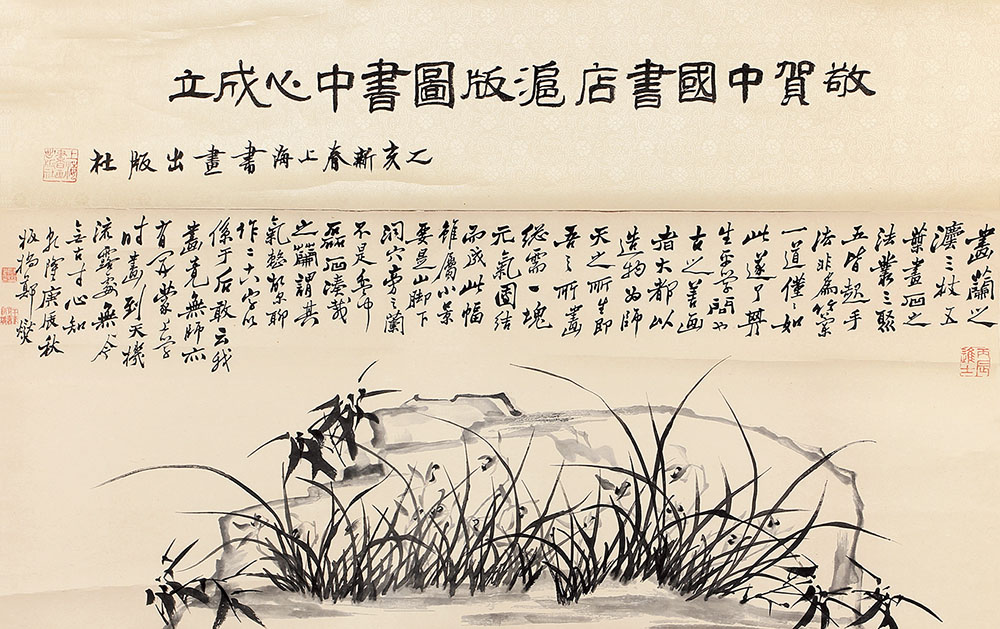 敬賀中國書店滬版圖書中心成立
乙亥新春上海書畫出版社
畫蘭之
法三枝五
葉畫石之
法叢三聚
五皆起手
法非為竹蘭
一道僅如
此遂了其
生平學問也
古之善画
者大都以
造物為師
天之所生即
吾之所畫
總需一塊
元氣團結
而成此幅
雖屬小景
要是山脚下
洞穴旁之蘭
不是盆中
磊石湊栽
之蘭謂其
氣整故爾聊
作二十八字以
係于后敢云我
畫竟無師亦
有開蒙上學
時畫到天機
流露處無今
無古寸心知
乾隆庚辰秋
板橋鄭燮
丙辰進士